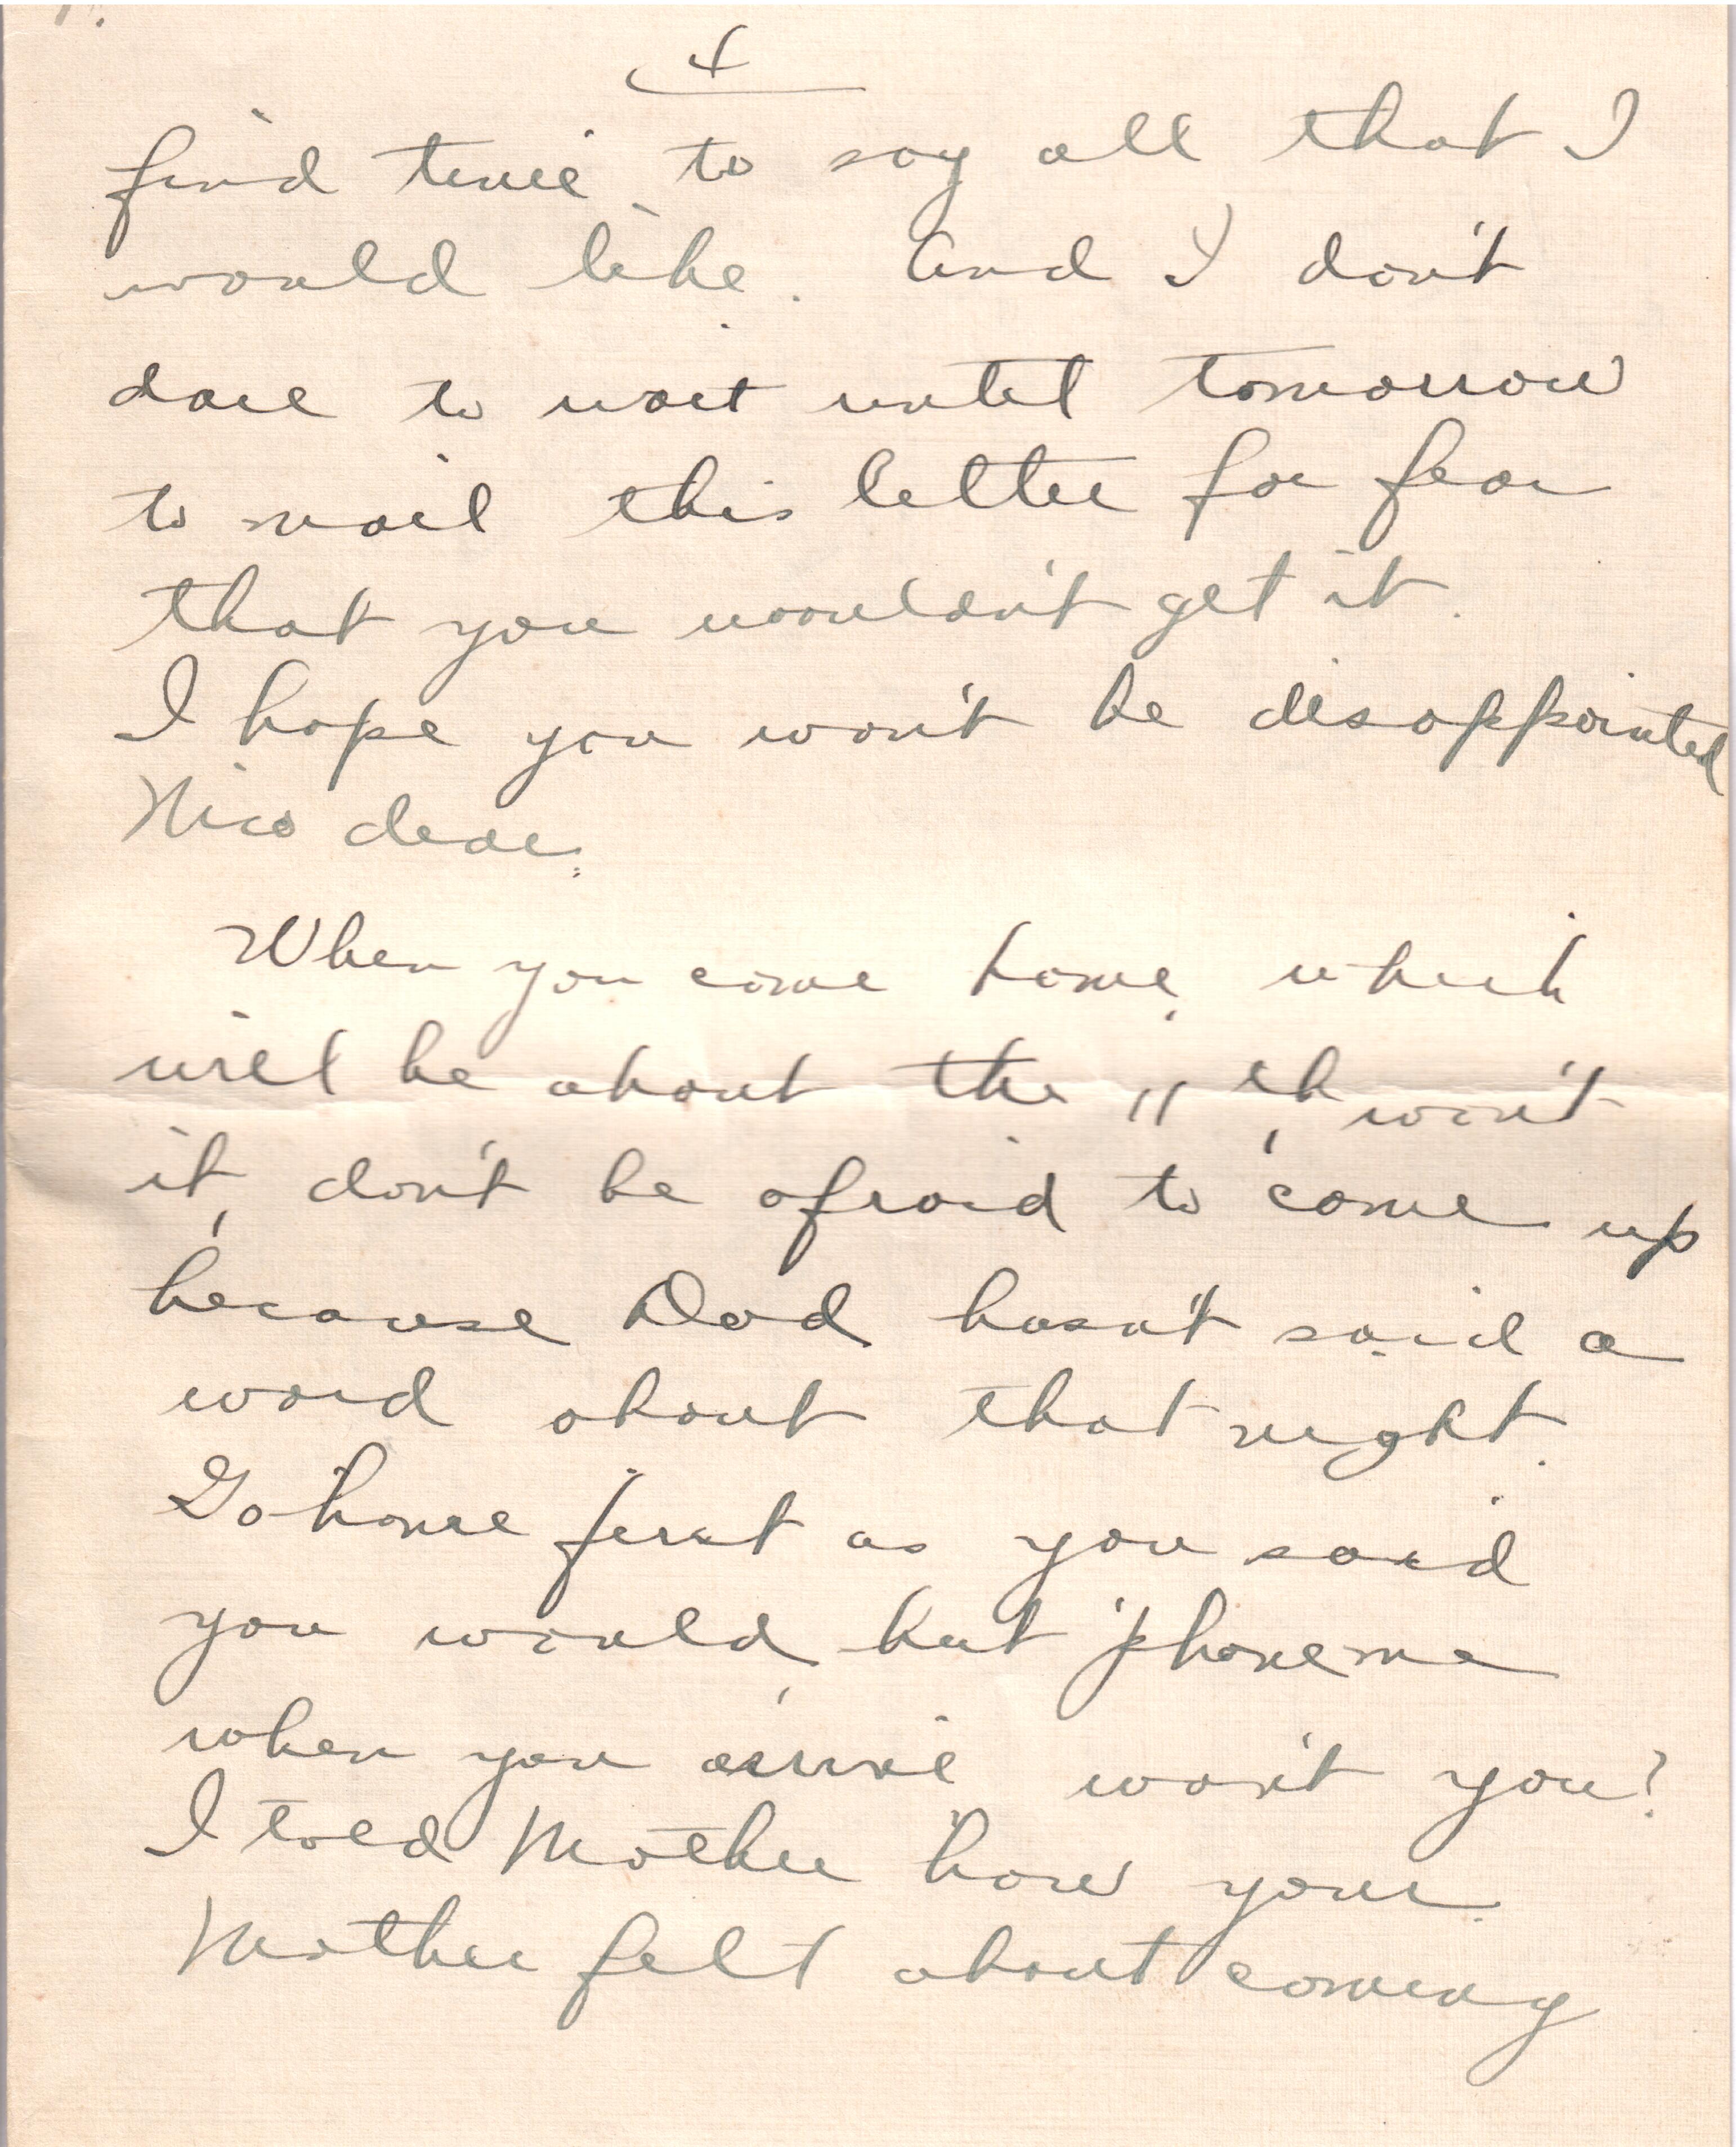 4
find time to say all that I
would like. And I don't
dare to wait until tomorrow
to mail this letter for fear
that you wouldn't get it.
I hope you won't be disappointed
Nico dear.
When you come home, which
will be about the 11th, won't
it, don't be afraid to come up
because Dad hasn't said a
word about that night.
Go home first as you said
you would, but 'phone me
when you arrive won't you?
I told Mother how your
Mother felt about coming